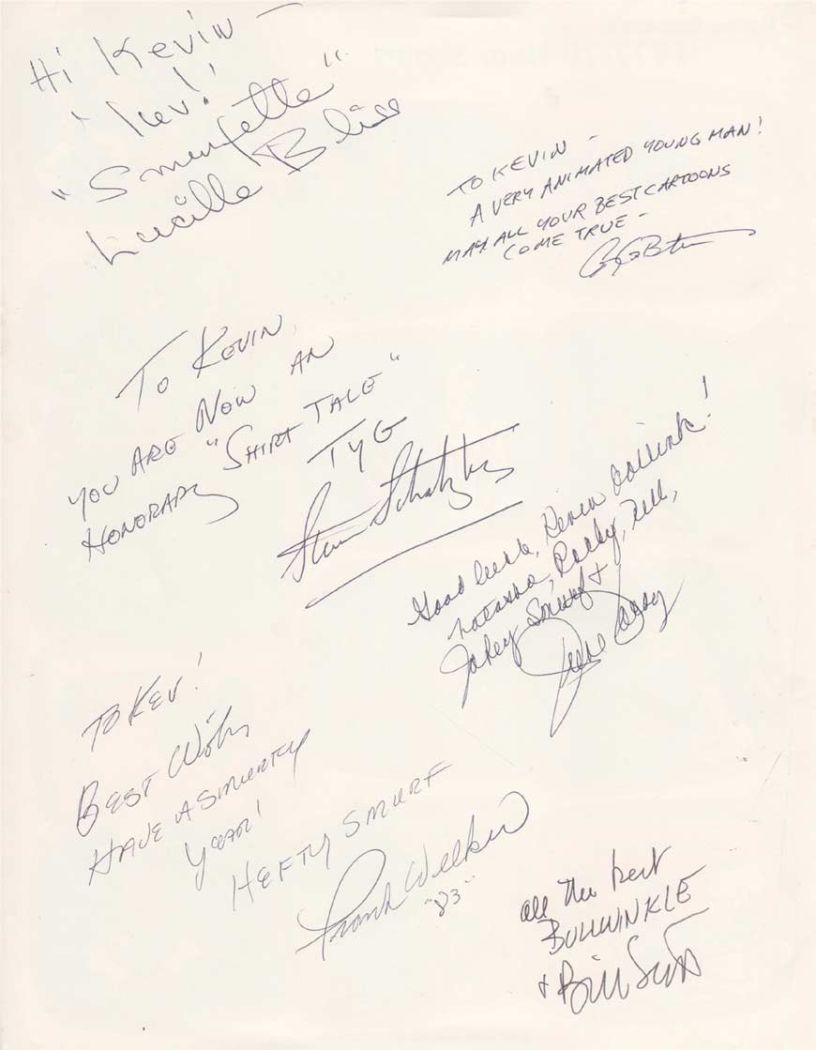 Hi Kevin —
" Kev!"
"Smurfette"
Lucille Bliss
TO KEVIN —
A VERY ANIMATED YOUNG MAN!
MAY ALL YOUR BEST CARTOONS
COME TRUE —
To KEVIN,
YOU ARE NOW AN
HONORARY "SHIRT TALE"
TYG
Steve Schatzberg
Good luck, Kevin
Natasha, Rocky, Nell,
Jokey Smurf +
June Foray
TO KEV!
BEST Wishes
HAVE A SMURFY
YEAR!
HEFTY SMURF
Frank Welker
"83"
all the best
BULLWINKLE
+ Bill Scott